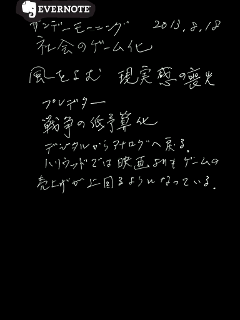 EVERNOTE
サンデーモーニング 2013.8.18
社会のゲーム化
風をよむ 現実感の喪失
プレデター
戦争の低予算化
デジタルからアナログへ戻る.
ハリウッドでは映画よりもゲームの
売上げが上回るようになっている.